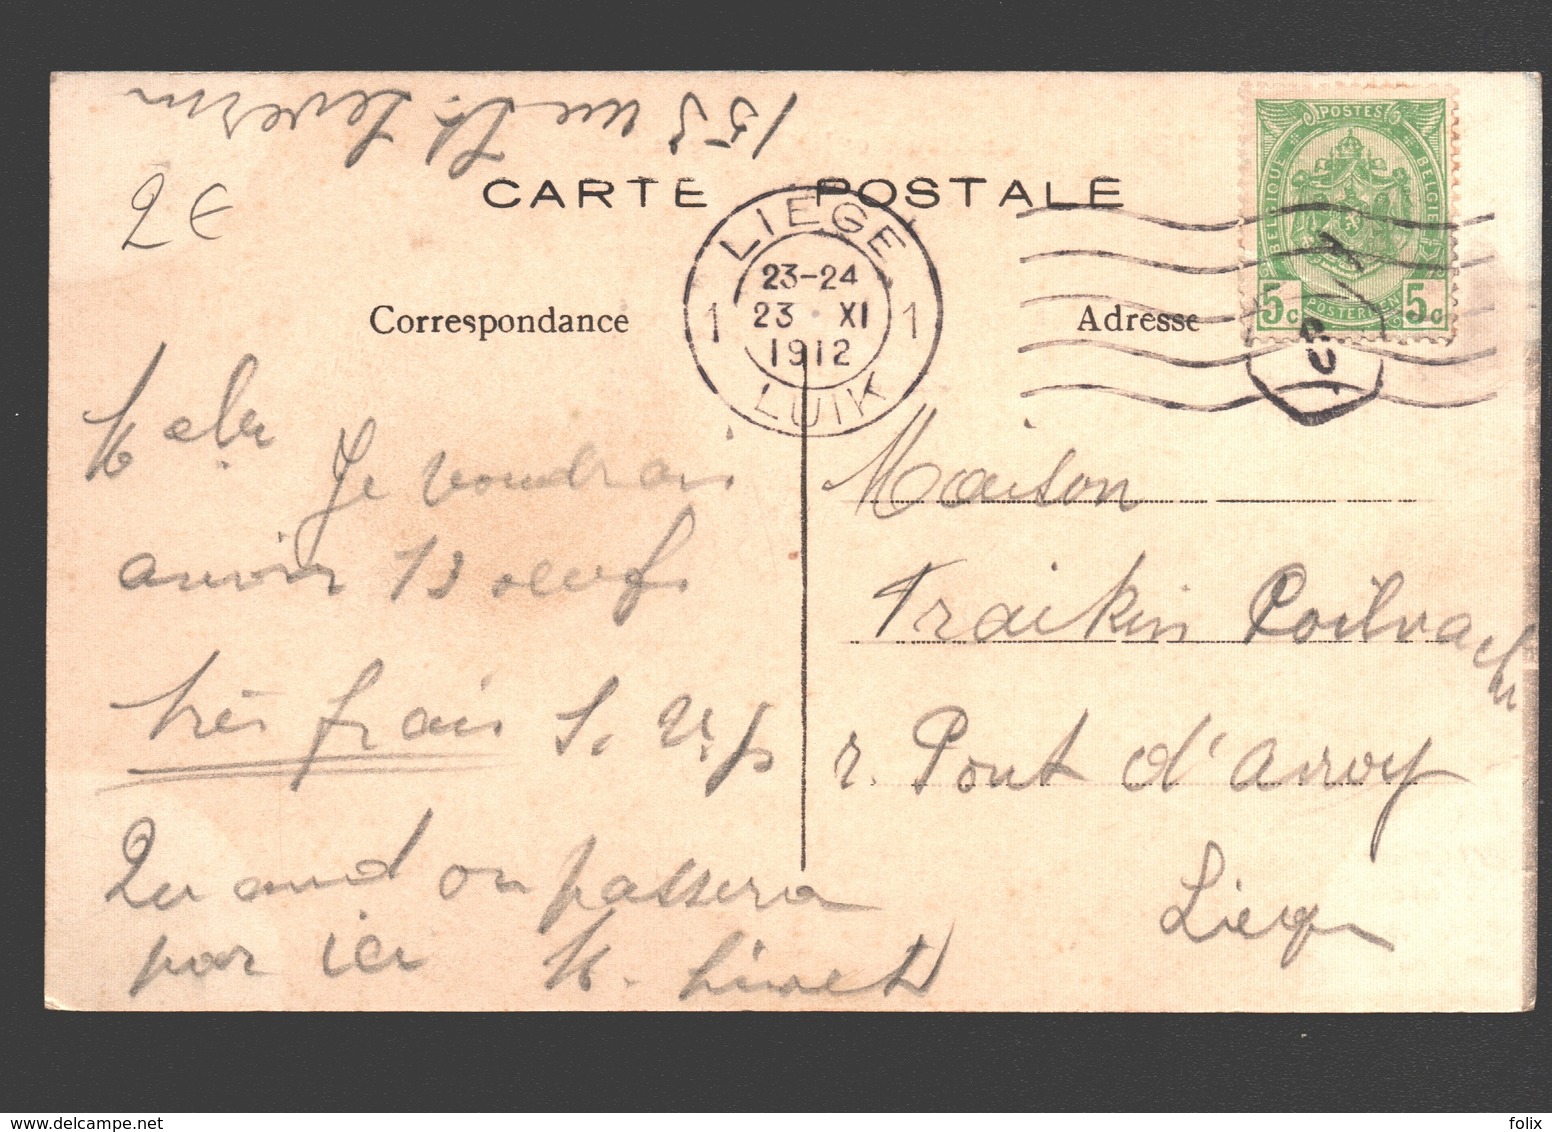 153 rue St. Severin
2 €
CARTE POSTALE
LIEGE
23-24
1 23 XI 1
1912
LUIK
POSTES
BELGIQUE BELGIE
5c POSTERIJEN 5c
Correspondance
Adresse
Je voudrais
avoir 13 oeufs
très frais S. V. p
Quand on passera
par ici
Maison
Traikin Poilvache
r. Pont d'avroy
Liege
delcampe.net
folix